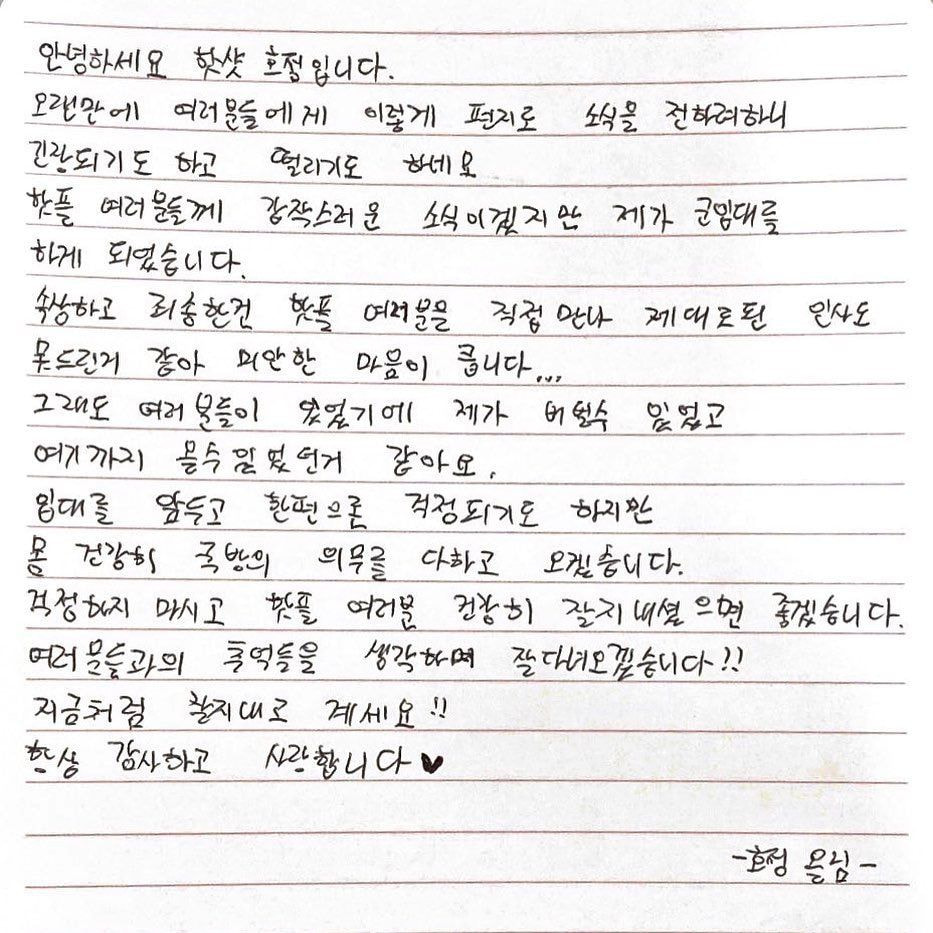 안녕하세요 핫샷 호정입니다.
오랜만에 여러분들에게 이렇게 편지로 소식을 전하려하니
긴장되기도 하고 떨리기도 하네요
핫플 여러분들께 갑작스러운 소식이겠지만 제가 군입대를
하게 되었습니다.
속상하고 죄송한건 핫플 여러분을 직접 만나 제대로된 인사도
못드린거 같아 미안한 마음이 큽니다...
그래도 여러분들이 있었기에 제가 버틸수 있었고
여기까지 올수있었던거 같아요.
입대를 앞두고 한편으론 걱정되기도 하지만
몸 건강히 국방의 의무를 다하고 오겠습니다.
걱정하지 마시고 핫플 여러분 건강히 잘지내셨으면 좋겠습니다.
여러분들과의 추억들을 생각하며 잘다녀오겠습니다!!
지금처럼 잘지내고 계세요!!
항상 감사하고 사랑합니다♥
-호정 올림-